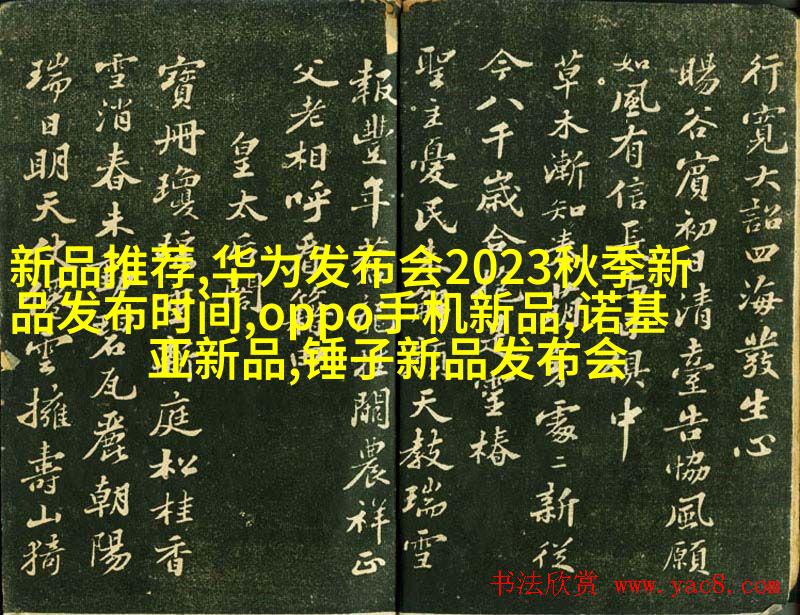 行寬大詔四海發生心
暘谷賓初日清臺告協風願
如風有信長俱中
草木漸知春處〻新從
今八千歲合靈椿
聖主憂民天教瑞雪
報豐年蒼龍闕農祥正
父老相呼看
皇太后閣
寶冊瓊庭松桂香
雪消春未瓦麗朝陽
瑞日明天仗雲擁壽山猗
新品推荐,华为发布会2023秋季新
品发布时间,oppo手机新品,诺基
亚新品,锤子新品发布会
书法欣赏 www.yac8.com